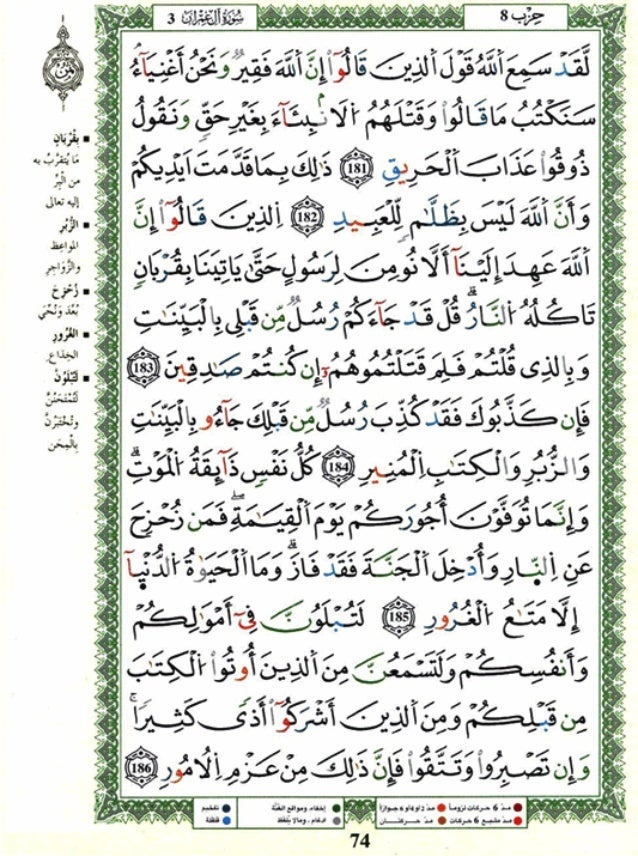 حِزْب 8
سُورَةُ آلِ عِمْرَان 3
لَّقَدْ سَمِعَ اَللَّهُ قَوْلَ اَلذِينَ قَالُوٓاْ إِنَّ اَللَّهَ فَقِيرٌ وَنَحْنُ أَغْنِيَآءُ
سَنَكْتُبُ مَا قَالُواْ وَقَتْلَهُمُ اُلَانۢبِئَآءَ بِغَيْرِ حَقٍّ وَنَقُولُ
ذُوقُواْ عَذَابَ اَلْحَرِيقِ 181 ذَٰلِكَ بِمَا قَدَّمَتَ اَيْدِيكُمْ
وَأَنَّ اَللَّهَ لَيْسَ بِظَلَّٰمٍ لِّلْعَبِيدِ 182 اِلذِينَ قَالُوٓاْ إِنَّ
اَللَّهَ عَهِدَ إِلَيْنَآ أَلَّا نُومِنَ لِرَسُولٍ حَتَّىٰ يَاتِيَنَا بِقُرْبَانٍ
تَاكُلُهُ اُلنَّارُ قُلْ قَدْ جَآءَكُمْ رُسُلٌ مِّن قَبْلِي بِالْبَيِّنَٰتِ
وَبِالذِي قُلْتُمْ فَلِمَ قَتَلْتُمُوهُمُۥٓ إِن كُنتُمْ صَٰدِقِينَ 183
فَإِن كَذَّبُوكَ فَقَدْ كُذِّبَ رُسُلٌ مِّن قَبْلِكَ جَآءُو بِالْبَيِّنَٰتِ
وَالزُّبُرِ وَالْكِتَٰبِ اِلْمُنِيرِ 184 كُلُّ نَفْسٍ ذَآئِقَةُ اُلْمَوْتِ
وَإِنَّمَا تُوَفَّوْنَ أُجُورَكُمْ يَوْمَ اَلْقِيَٰمَةِ فَمَن زُحْزِحَ
عَنِ اِلنَّارِ وَأُدْخِلَ اَلْجَنَّةَ فَقَدْ فَازَ وَمَا اَلْحَيَوٰةُ اُلدُّنْيَآ
إِلَّا مَتَٰعُ اُلْغُرُورِ 185 لَتُبْلَوُنَّ فِيٓ أَمْوَٰلِكُمْ
وَأَنفُسِكُمْ وَلَتَسْمَعُنَّ مِنَ اَلذِينَ أُوتُواْ اُلْكِتَٰبَ
مِن قَبْلِكُمْ وَمِنَ اَلذِينَ أَشْرَكُوٓاْ أَذًى كَثِيرًا
وَإِن تَصْبِرُواْ وَتَتَّقُواْ فَإِنَّ ذَٰلِكَ مِنْ عَزْمِ اِلُامُورِ 186
ثمن
بِقُرْبَانٍ
مَا يُتقرَّبُ به
من البِرّ
إليه تعالى
الزُّبُرِ
المواعظ
والزَّوَاجِرِ
زُحْزِحَ
بَعُدَ وَنُحِّيَ
الغُرُورِ
الخِدَاع
لَتُبْلَوُنَّ
لَتُمْتَحَنُنَّ
وتُخْتَبَرُنَّ
بالْمِحَن
مدّ 6 حركات لزوماً
مدّ 2 أو 4 أو 6 جوازاً
إخفاء، ومواقع الغُنَّة
تفخيم
مدّ مشبع 6 حركات
مدّ حركتان
ادغام، ومالا يُلفظ
قلقلة
74